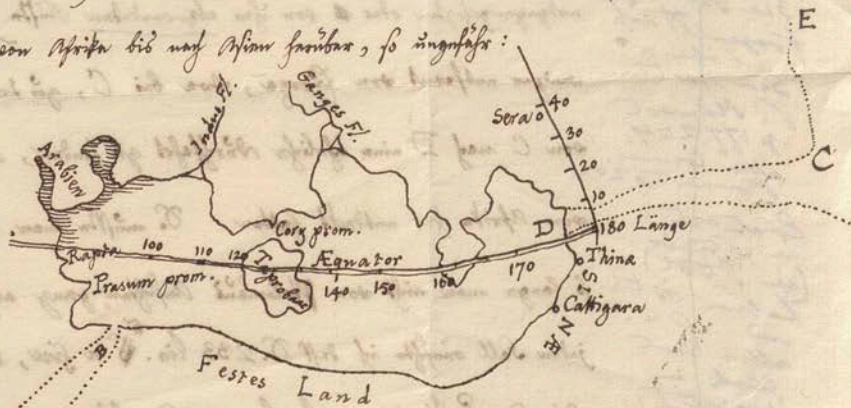 E
von Afrika bis nach Asien herüber, so ungefähr:
Indus Fl.
Ganges Fl.
Sera
40
30
20
10
C
Arabien
Cory prom.
D
180 Länge
Rapta
100
110
120
Taprobane
Æquator
140
150
160
170
Thinæ
Prasum prom.
SINÆ
Cattigara
B
Festes Land